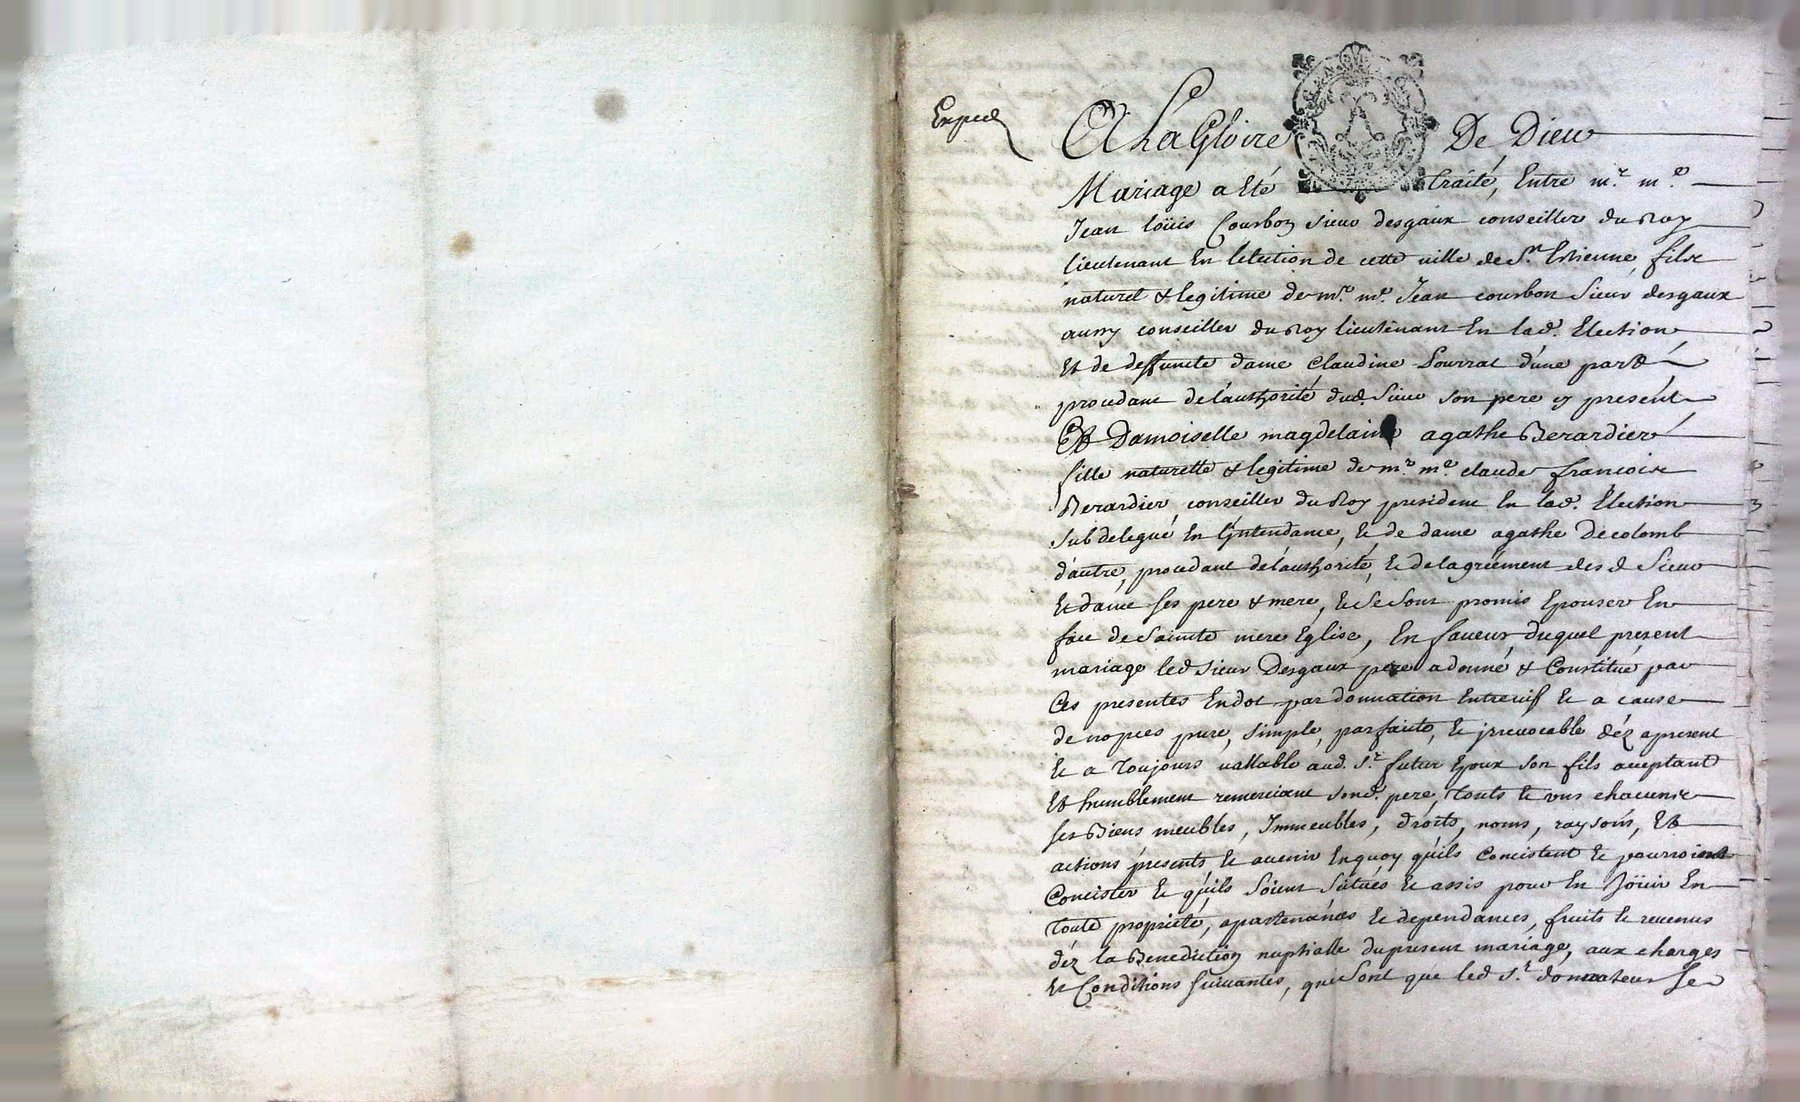 Expedé
A La Gloire De Dieu
Mariage a Eté traité, Entre mr. me.
Jean loüis Courbon sieur desgaux conseiller du Roy
lieutenant En lelection de cette ville de St. Estienne, fils
naturel & legitime de mr. me. Jean courbon sieur desgaux
aussy conseiller du Roy lieutenant En lad. Election
Et de deffuncte dame Claudine Pourrat d'une part
procedant de l'authorité dud. sieur son pere y present
Et Damoiselle magdelaine agathe Berardier
fille naturelle & legitime de mr. me. claude francois
Berardier conseiller du Roy president En lad. Election
subdelegué En Lintendance, & de dame agathe Decolomb
d'autre, procedant de l'authorité, & de lagréement des d. Sieur
Et dame ses pere & mere, & se sont promis Epouser En
face de sainte mere Eglise, En faveur duquel present
mariage led sieur Desgaux pere a donné & Constitué par
Ces presentes En dot par donnation Entrevifs & a cause
de nopces pure, simple, parfaite, & jrrevocable déz apresent
& a toujours vallable aud. Sr. futur Epoux son fils acceptant
Et humblement remerciant sond. pere, touts & uns chacuns
ses Biens meubles, Immeubles, droits, noms, raysons, Et
actions presents & avenir En quoy qu'ils Concistent & pourroient
Concister & qu'ils soient situés & assis pour En Joüir En
toute proprieté, apartenances & dependances, fruits & revenus
déz la Benediction nuptialle du present mariage, aux charges
Et Conditions suivantes, que Sont que led Sr. donnateur se